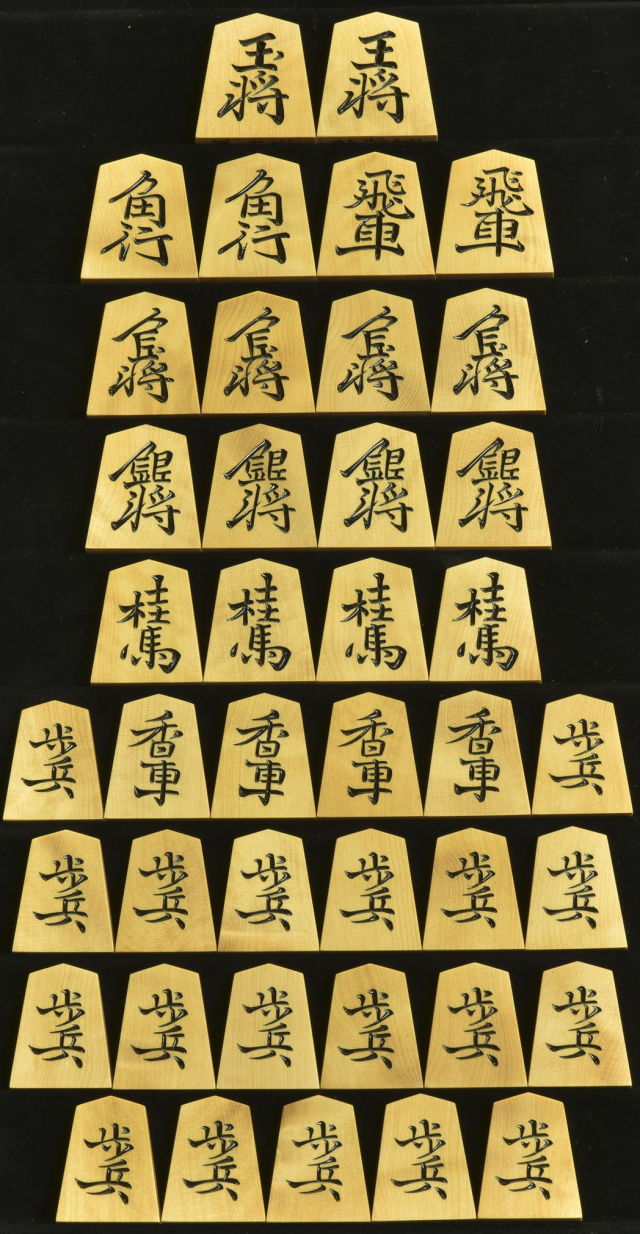 玉将 王将
角行 角行 飛車 飛車
金将 金将 金将 金将
銀将 銀将 銀将 銀将
桂馬 桂馬 桂馬 桂馬
歩兵 香車 香車 香車 香車 歩兵
歩兵 歩兵 歩兵 歩兵 歩兵 歩兵
歩兵 歩兵 歩兵 歩兵 歩兵 歩兵
歩兵 歩兵 歩兵 歩兵 歩兵